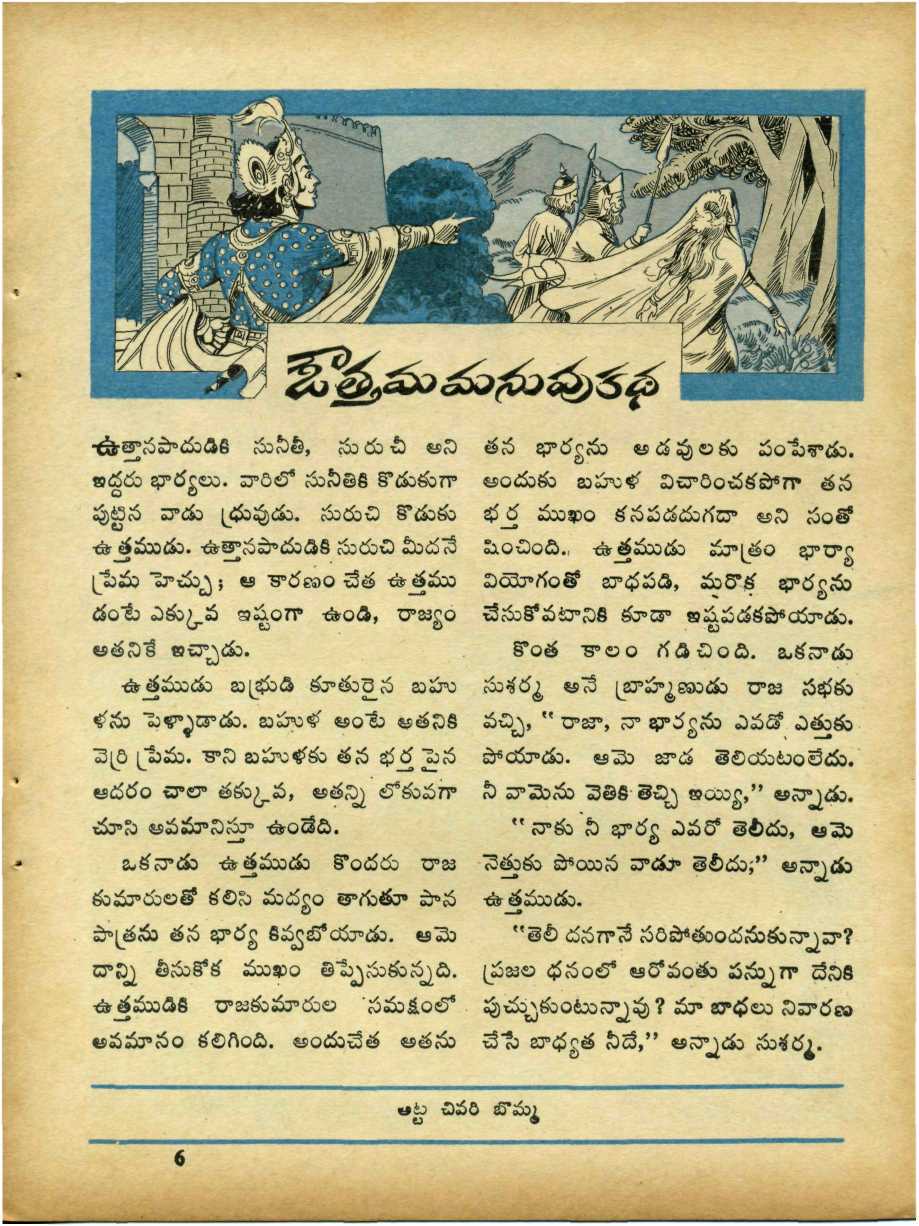 ఔత్తమ మనువు కథ
ఉత్తానపాదుడికి సునీతీ, సురుచీ అని
ఇద్దరు భార్యలు. వారిలో సునీతికి కొడుకుగా
పుట్టిన వాడు ధ్రువుడు. సురుచి కొడుకు
ఉత్తముడు. ఉత్తానపాదుడికి సురుచి మీదనే
ప్రేమ హెచ్చు; ఆ కారణం చేత ఉత్తము
డంటే ఎక్కువ ఇష్టంగా ఉండి, రాజ్యం
అతనికే ఇచ్చాడు.
ఉత్తముడు బభ్రుడి కూతురైన బహు
ళను పెళ్ళాడాడు. బహుళ అంటే అతనికి
వెర్రి ప్రేమ. కాని బహుళకు తన భర్త పైన
ఆదరం చాలా తక్కువ, అతన్ని లోకువగా
చూసి అవమానిస్తూ ఉండేది.
ఒకనాడు ఉత్తముడు కొందరు రాజ
కుమారులతో కలిసి మద్యం తాగుతూ పాన
పాత్రను తన భార్య కివ్వబోయాడు. ఆమె
దాన్ని తీసుకోక ముఖం తిప్పేసుకున్నది.
ఉత్తముడికి రాజకుమారుల సమక్షంలో
అవమానం కలిగింది. అందుచేత అతను
తన భార్యను అడవులకు పంపేశాడు.
అందుకు బహుళ విచారించకపోగా తన
భర్త ముఖం కనపడదుగదా అని సంతో
షించింది. ఉత్తముడు మాత్రం భార్యా
వియోగంతో బాధపడి, మరొక భార్యను
చేసుకోవటానికి కూడా ఇష్టపడకపోయాడు.
కొంత కాలం గడిచింది. ఒకనాడు
సుశర్మ అనే బ్రాహ్మణుడు రాజ సభకు
వచ్చి, “రాజా, నా భార్యను ఎవడో ఎత్తుకు
పోయాడు. ఆమె జాడ తెలియటంలేదు.
నీ వామెను వెతికి తెచ్చి ఇయ్యి,” అన్నాడు.
“నాకు నీ భార్య ఎవరో తెలీదు, ఆమె
నెత్తుకు పోయిన వాడూ తెలీదు;” అన్నాడు
ఉత్తముడు.
“తెలీ దనగానే సరిపోతుందనుకున్నావా?
ప్రజల ధనంలో ఆరోవంతు పన్నుగా దేనికి
పుచ్చుకుంటున్నావు? మా బాధలు నివారణ
చేసే బాధ్యత నీదే,” అన్నాడు సుశర్మ.
అట్ట చివరి బొమ్మ
6